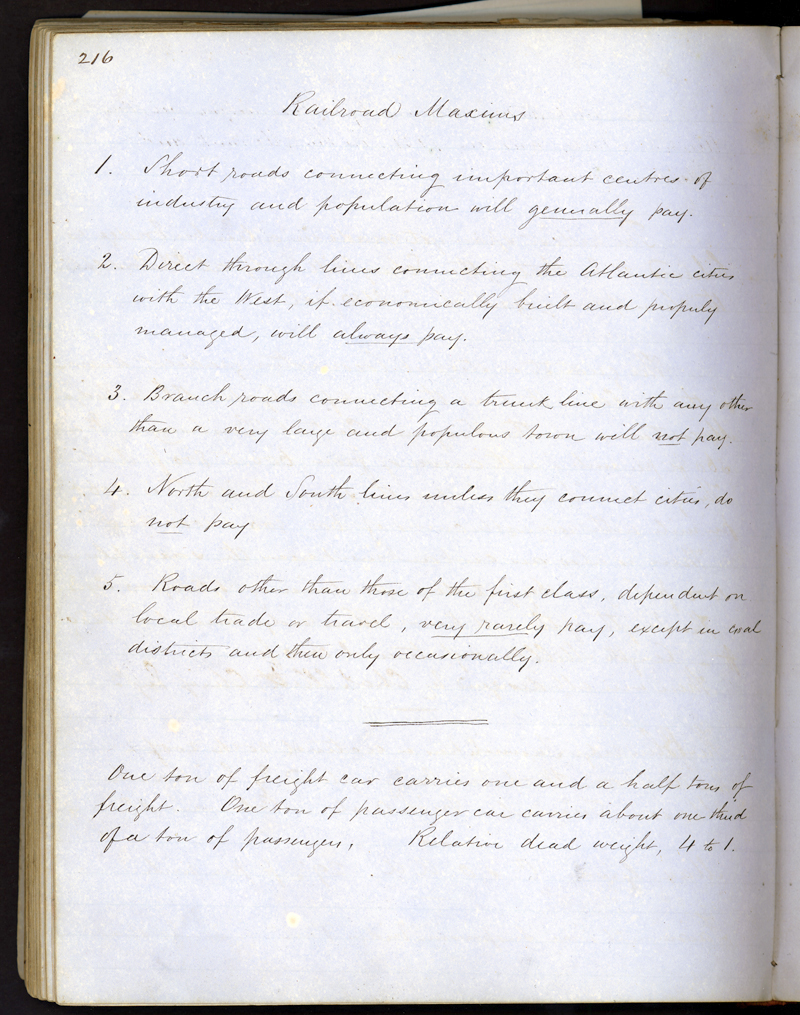 216
Railroad Maxims
1. Short roads connecting important centres of
industry and population will generally pay.
2. Direct through lines connecting the Atlantic cities
with the West, if economically built and properly
managed, will always pay.
3. Branch roads connecting a trunk line with any other
than a very large and populous town will not pay.
4. North and South lines unless they connect cities, do
not pay
5. Roads other than those of the first class, dependent on
local trade or travel, very rarely pay, except in coal
districts and then only occasionally.
One ton of freight car carries one and a half tons of
freight. One ton of passenger car carries about one third
of a ton of passengers, Relative dead weight, 4 to 1.